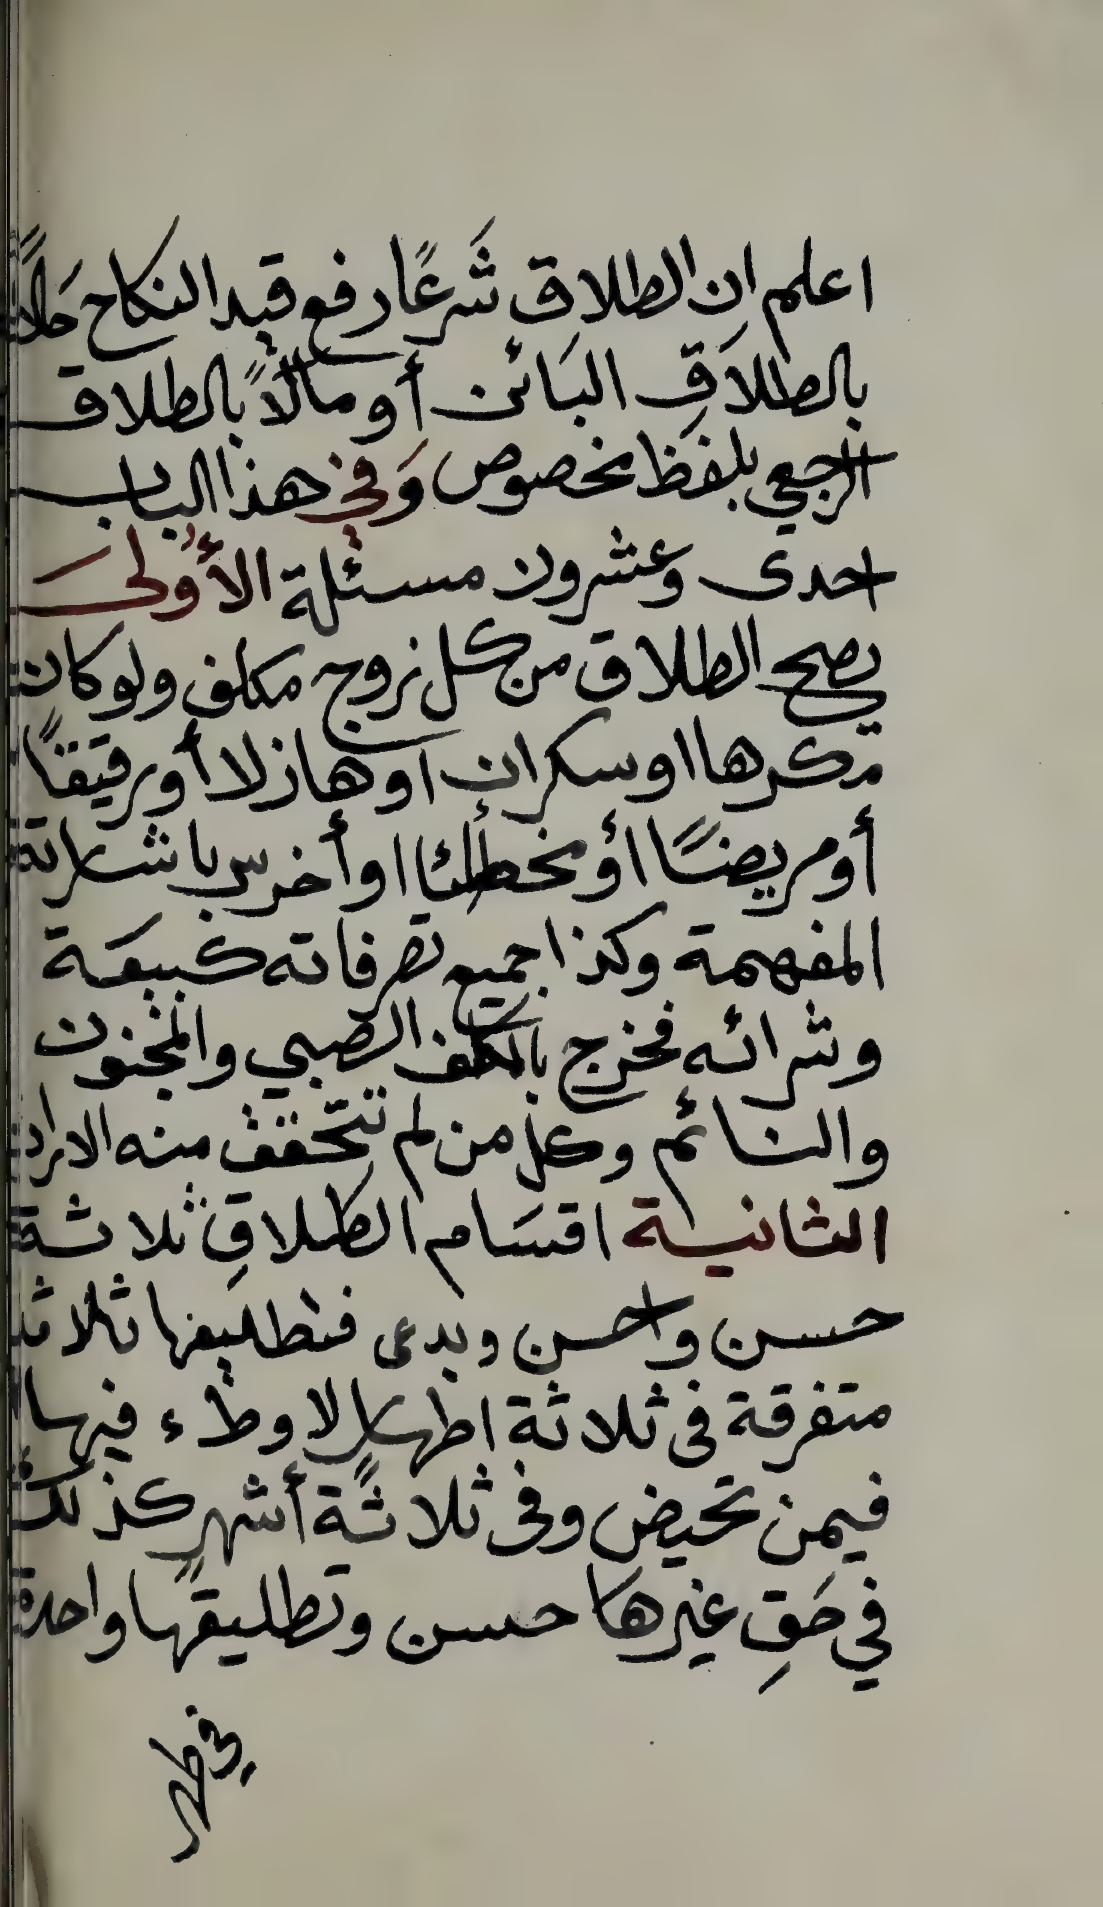 اعلم ان الطلاق شَرعًا رفع قيد النكاح حَالاً
بالطلاَقِ البَائن أو مالاً بالطلاق
الرجعي بلفظ مخصوص وَفي هذا الباب
احدى وعشرون مسئلة الأُولى
يصح الطلاق من كل زوج مكلف ولو كان
مكرها او سكران او هازلا أو رقيقًا
أو مريضًا او مخطئا او أخرس باشارته
المفهمة وكذا جميع تصرفاته كبيعَة
وشرائه فخرج بالمكلف الصبي والمجنون
والنائم وكل من لم تتحقق منه الارادة
الثانية اقسَام الطلاقِ ثلاثة
حسن واحسن وبدعى فتطليقها ثلاثا
متفرقة فى ثلاثة اطهار لا وطء فيها
فيمن تحيض وفى ثلاثة أشهرٍ كذلك
في حَقِ غيرها حسن وتطليقها واحدة
في طهر